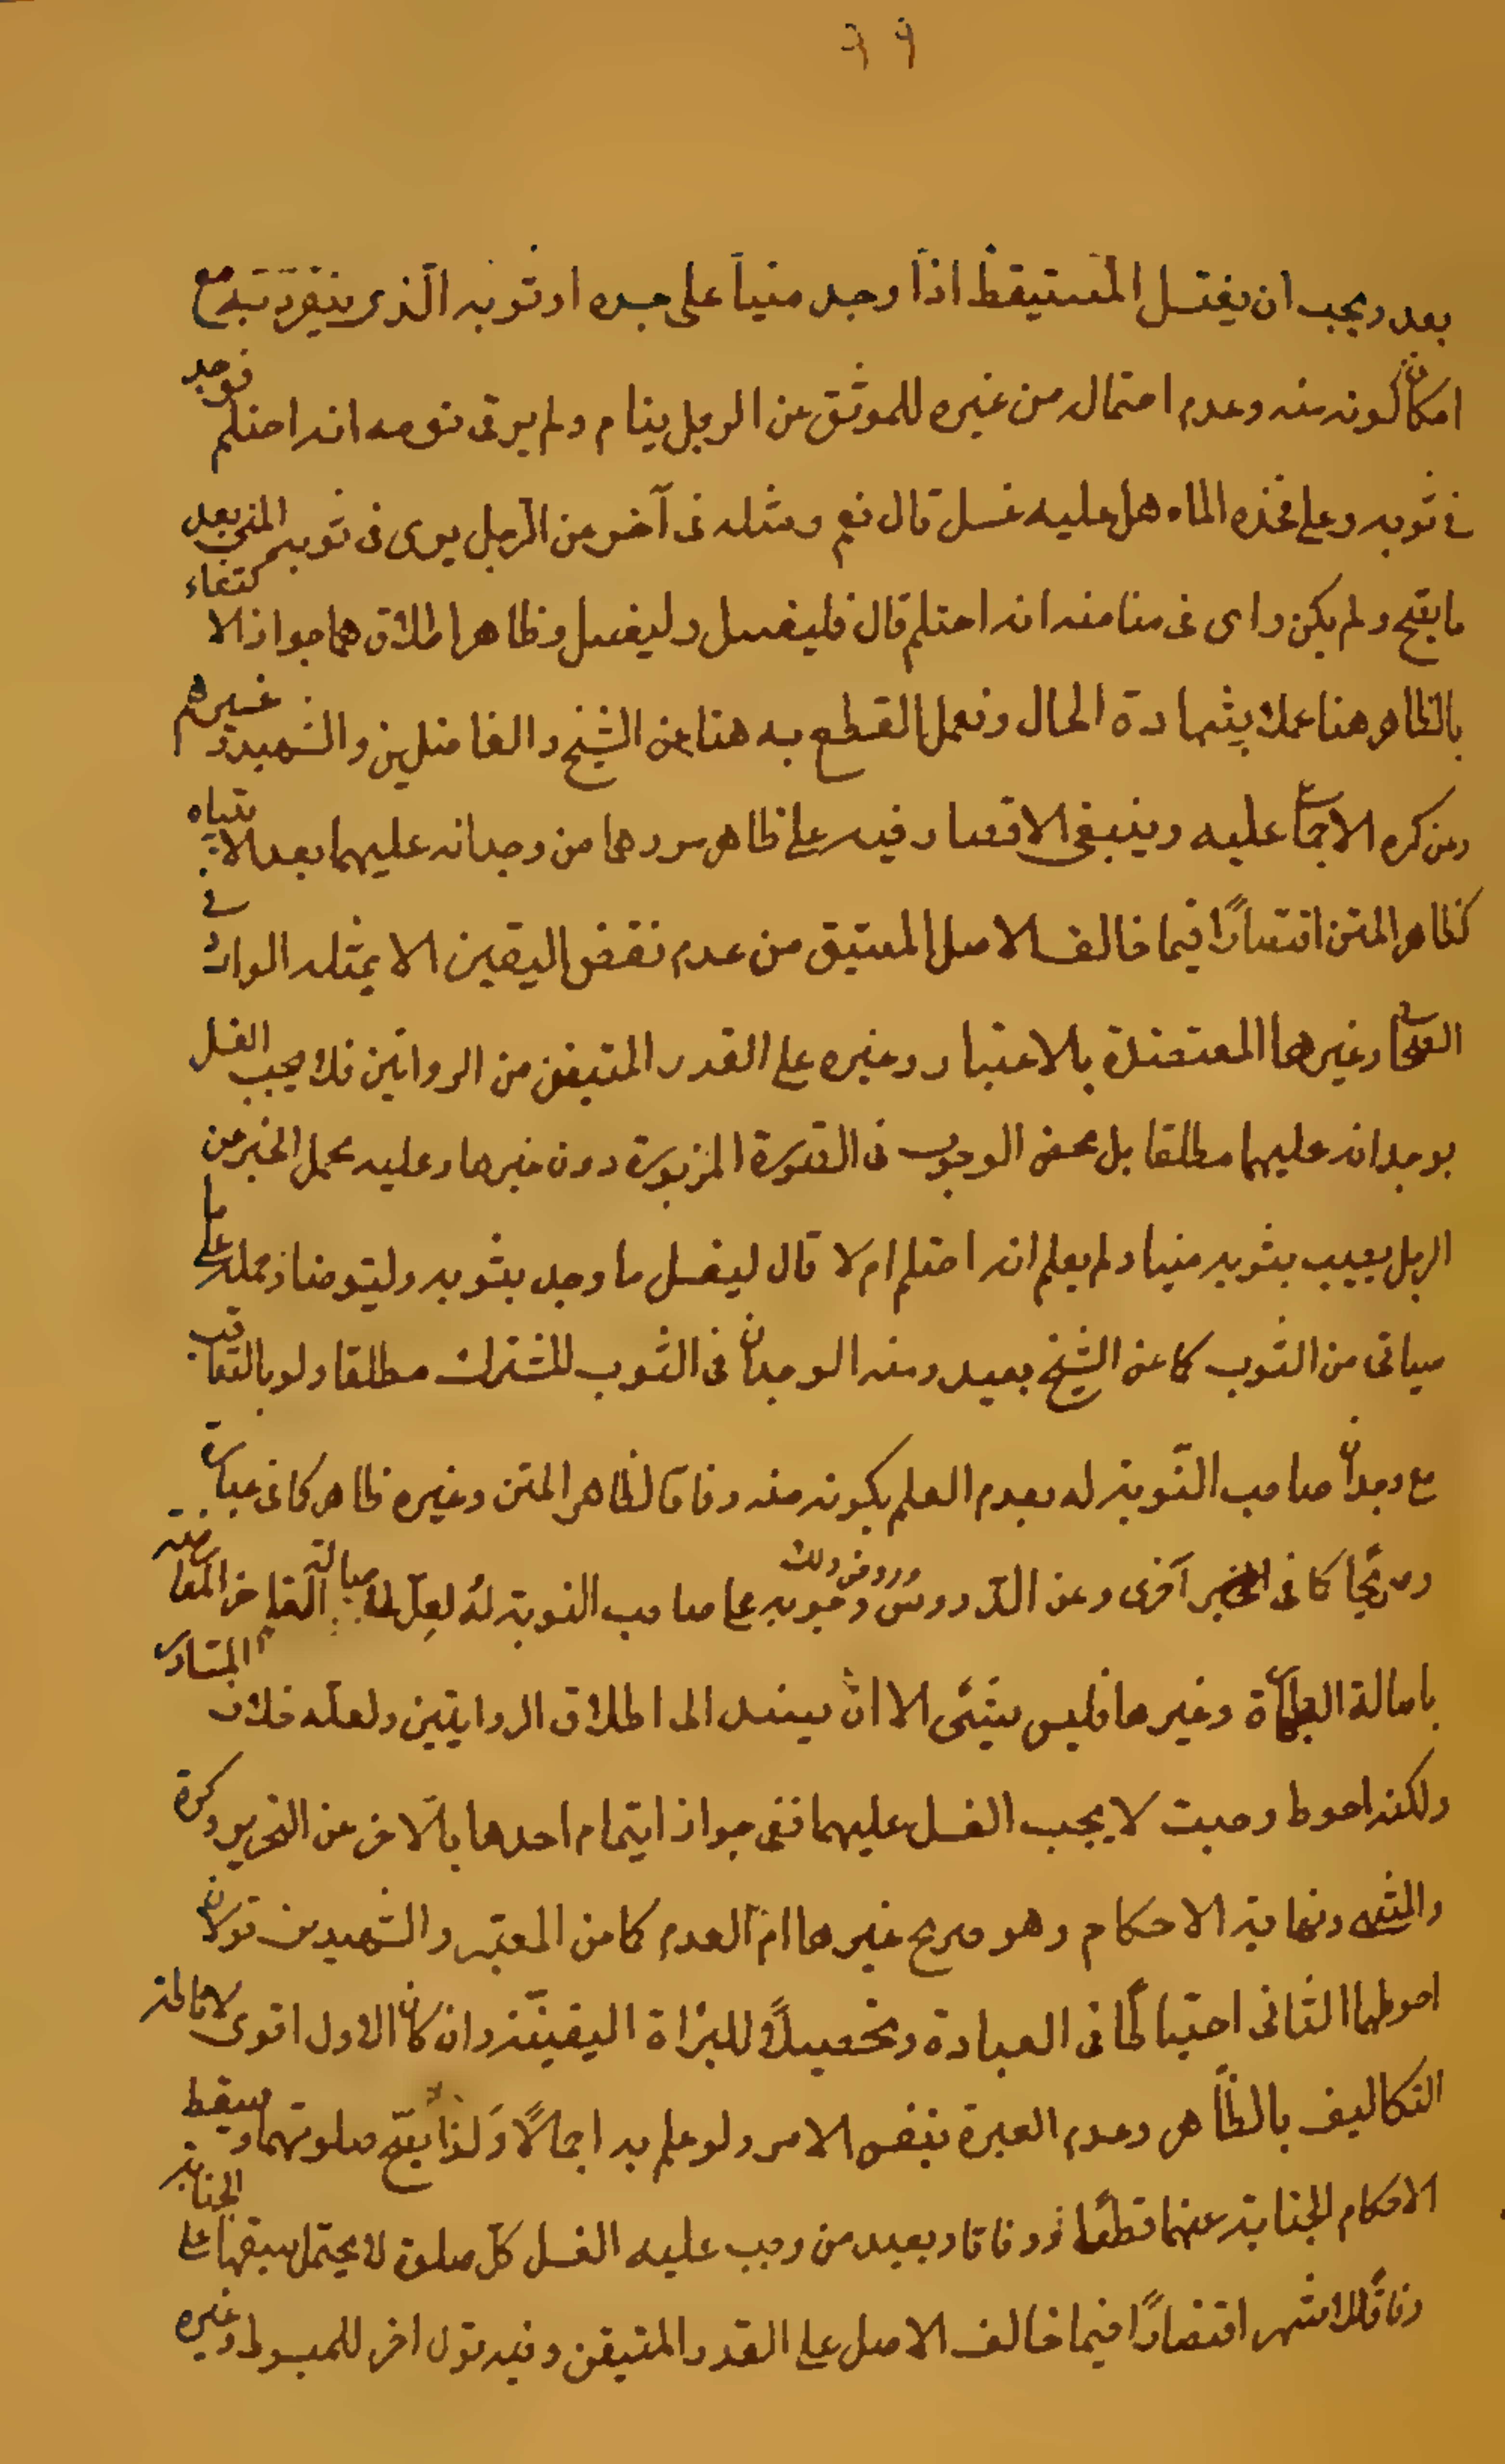 ٩٩
بعد ويجب ان يغتسل المستيقظ اذا وجد منيا على جسده او ثوبه الذى ينفرد به مع
امكان كونه منه وعدم احتماله من غيره للموثق عن الرجل ينام ولم ير فى نومه انه احتلم فوجد
فى ثوبه وعلى فخذه الماء هل عليه غسل قال نعم ومثله فى آخر عن الرجل يرى فى ثوبه المنى بعد
ما يصبح ولم يكن راى فى منامه انه احتلم قال فليغتسل وليغسل وظاهر اطلاقهما جواز الاكتفاء
بالظاهر هنا عملا بشهادة الحال ونعمل القطع به هنا عن الشيخ والفاضلين والشهيد وغيرهم
وعن كره الاجماع عليه وينبغى الاقتصار فيه على ظاهر موردهما من وجدانه عليهما بعد الانتباه
كظاهر المتن اقتصارًا فيما خالف الاصل المستيقن من عدم نقض اليقين الا بمثله الوارد فى
الصحاح وغيرها المعتضدة بالاعتبار وغيره على القدر المتيقن من الروايتين فلا يجب الغسل
بوجدانه عليهما مطلقا بل محض الوجوب فى الصورة المزبورة دون غيرها وعليه يحمل الخبر عن
الرجل يصيب بثوبه منيا ولم يعلم انه احتلم ام لا قال ليغسل ما وجد بثوبه وليتوضا وحمله على ما
سياتى من الثوب كما عن الشيخ بعيد ومنه الوجدان فى الثوب المشترك مطلقا ولو بالتعاقب
مع وجدان صاحب النوبة له بعدم العلم بكونه منه وفاقا لظاهر المتن وغيره ظاهر كما فى عبارة
وصريحًا كما فى اخرى وعن الدروس وروض ذلك وجوبه على صاحب النوبة له لعله لاصالة التاخر المعارضة
باصالة الطهارة وغيرها فليس بشئ الا ان يستند الى اطلاق الروايتين ولعله خلاف المتبادر
ولكنه احوط وحيث لا يجب الغسل عليهما ففى جواز ايتمام احدهما بالاخر عن التحرير وكرة
والمنتهى ونهاية الاحكام وهو صريح غيرها ام العدم كما من المعتبر والشهيدين قولان
احوطهما الثانى احتياطًا فى العبادة وتحصيلًا للبرائة اليقينية وان كان الاول اقوى لاناطة
التكاليف بالظاهر وعدم العبرة بنفس الامر ولو علم به اجمالًا ولذا يصح صلوتهما ويسقط
الاحكام الجنابة عنهما قطعًا ووفاقا ويعيد من وجب عليه الغسل كل صلوة لا يحتمل سبقها على الجنابة
وفاقًا للاشهر اقتصارًا فيما خالف الاصل على القدر المتيقن وفيه قول اخر للمبسوط وغيره